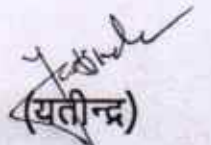 (यतीन्द्र)